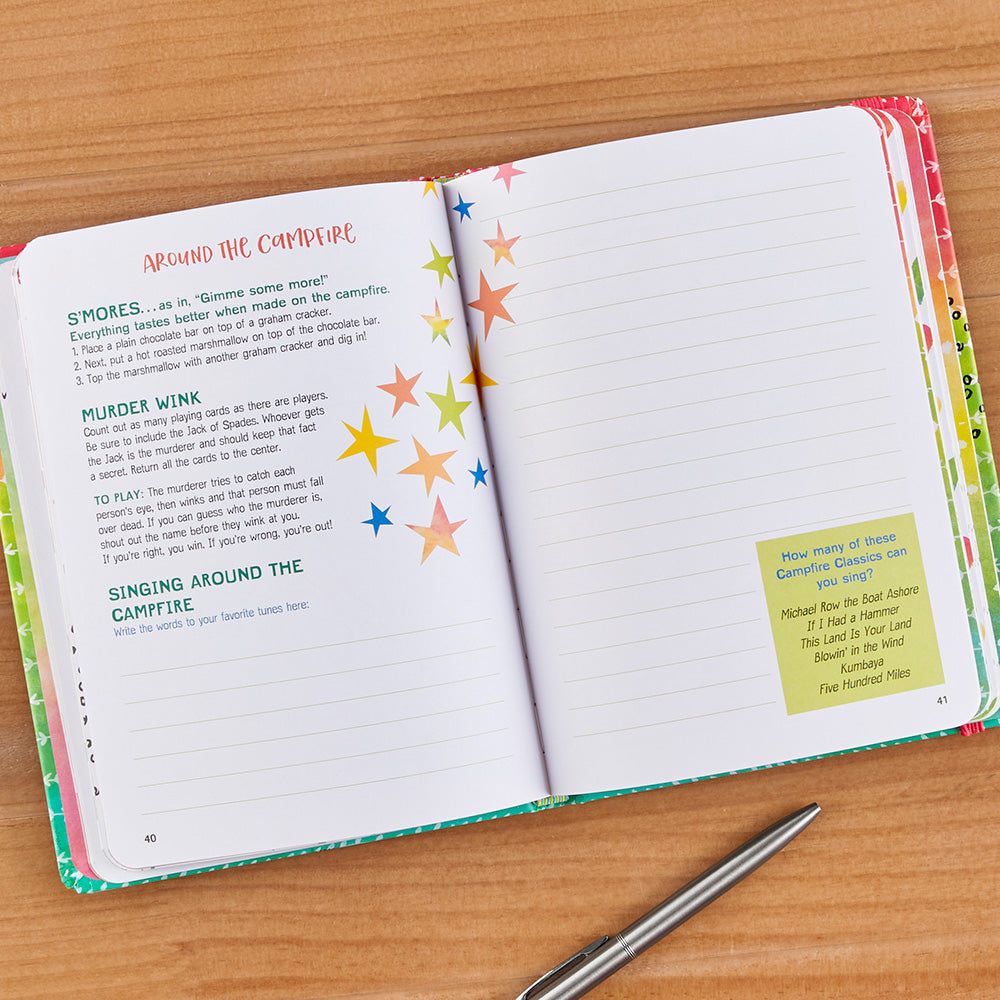 AROUND THE CAMPFIRE
S'MORES... as in, "Gimme some more!"
Everything tastes better when made on the campfire.
1. Place a plain chocolate bar on top of a graham cracker.
2. Next, put a hot roasted marshmallow on top of the chocolate bar.
3. Top the marshmallow with another graham cracker and dig in!
MURDER WINK
Count out as many playing cards as there are players.
Be sure to include the Jack of Spades. Whoever gets
the Jack is the murderer and should keep that fact
a secret. Return all the cards to the center.
TO PLAY: The murderer tries to catch each
person's eye, then winks and that person must fall
over dead. If you can guess who the murderer is,
shout out the name before they wink at you.
If you're right, you win. If you're wrong, you're out!
SINGING AROUND THE
CAMPFIRE
Write the words to your favorite tunes here:
40
How many of these
Campfire Classics can
you sing?
Michael Row the Boat Ashore
If I Had a Hammer
This Land Is Your Land
Blowin' in the Wind
Kumbaya
Five Hundred Miles
41